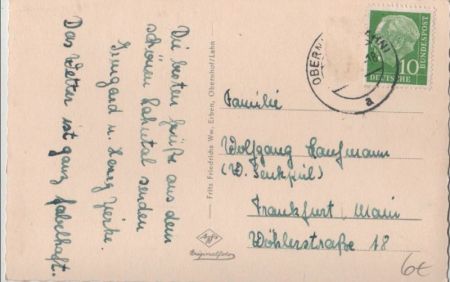 Die besten Grüße aus dem
schönen Lahntal senden
Irmgard u. Georg
Das Wetter ist ganz fabelhaft.
Fritz Friedrichs Ww. Erben, Obernhof/Lahn
Agfa
Originalfoto
OBERN
LAHN
a
10
DEUTSCHE
BUNDESPOST
Familie
Wolfgang Kaufmann
(W. Senkpiel)
Frankfurt Main
Wöhlerstraße 18
6€